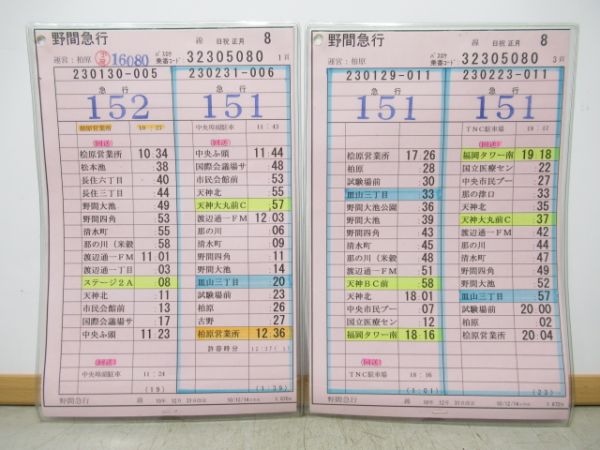 野間急行
線 日祝 正月 8
運営:柏原 16080
バスロケ
乗番コード: 32305080 1頁
230130-005
急行
152
桧原営業所
回送
桧原営業所 10 34
松本池 :38
長住六丁目 :40
長住三丁目 :44
野間大池 :49
野間四角 :53
清水町 :55
那の川(米穀 :58
渡辺通一FM 11 01
渡辺通一丁目 :03
ステージ2A :08
天神北 :12
市民会館前 :13
国際会議場サ :17
中央ふ頭 11 23
回送
中央埠頭駐車 11:24
(19)
230231-006
急行
151
中央埠頭駐車 11:43
回送
中央ふ頭 11 44
国際会議場サ :48
市民会館前 :53
天神北 :55
天神大丸前C :57
渡辺通一FM 12 03
那の川 :06
清水町 :09
野間四角 :11
野間大池 :14
皿山三丁目 :20
試験場前 :23
柏原 :26
吉野 :27
桧原営業所 12 36
許容時分
(1:39)
野間急行
野間急行
線 日祝 正月 8
運営:柏原
バスロケ
乗番コード: 32305080 3頁
230129-011
急行
151
回送
桧原営業所 17 26
柏原 :28
試験場前 :30
皿山三丁目 :33
野間大池公園 :36
野間大池 :39
野間四角 :43
清水町 :45
那の川(米穀 :48
渡辺通一FM :51
天神BC前 :58
天神北 18 01
中央市民プー :07
国立医療セン :12
福岡タワー南 18 16
回送
TNC駐車場 18:16
(1:01)
230223-011
急行
151
TNC駐車場 19:17
回送
福岡タワー南 19 18
国立医療セン :22
中央市民プー :27
那の津口 :33
天神北 :35
天神大丸前C :37
渡辺通一FM :42
那の川 :44
清水町 :47
野間四角 :49
野間大池 :52
皿山三丁目 :57
試験場前 20 00
柏原 :02
桧原営業所 20 04
(23)
野間急行